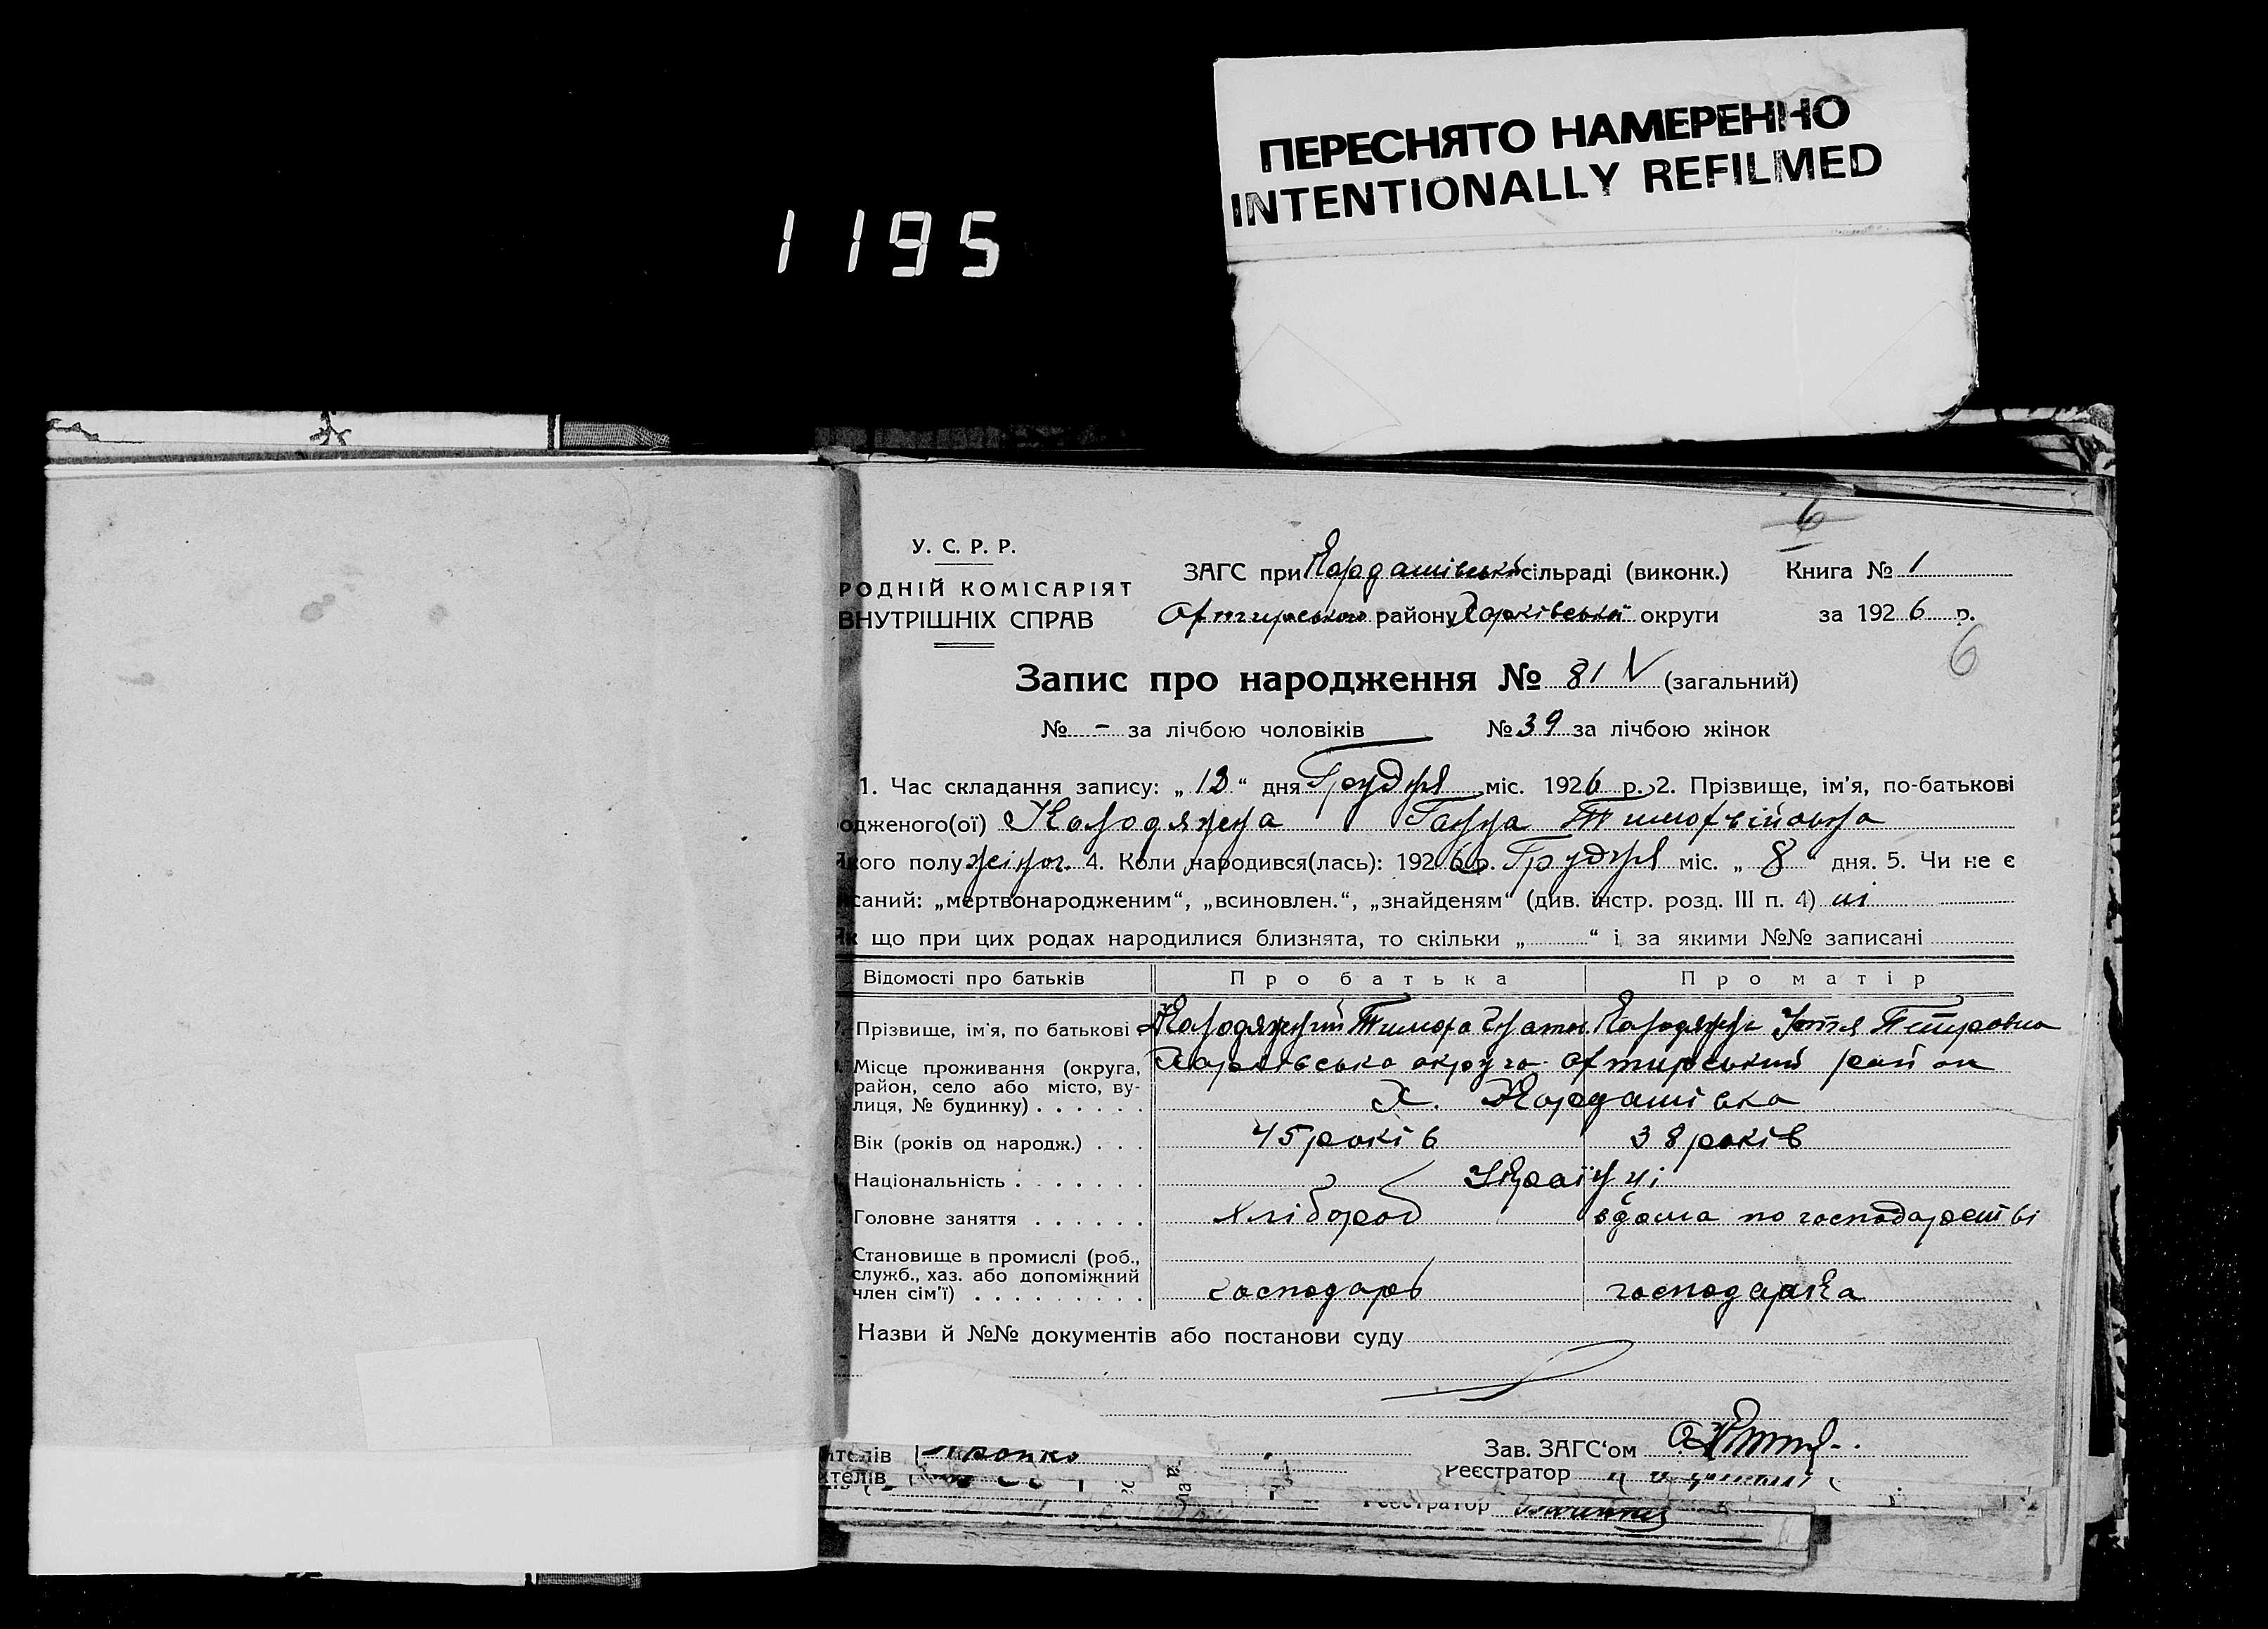 ПЕРЕСНЯТО НАМЕРЕННО
INTENTIONALLY REFILMED
1195
6
У. С. Р. Р.
РОДНІЙ КОМІСАРІЯТ
ВНУТРІШНІХ СПРАВ
ЗАГС при Кардашівській сільраді (виконк.) Книга № 1
Охтирського району Харківської округи за 1926 р.
6
Запис про народження № 81 V (загальний)
№ - за лічбою чоловіків № 39 за лічбою жінок
1. Час складання запису: „ 12 “ дня Грудня міс. 1926 р. 2. Прізвище, ім'я, по-батькові
одженого(ої) Колодяжна Ганна Тимофвійовна
якого полу жіноч. 4. Коли народився(лась): 1926 р. Грудня міс. „ 8 “ дня. 5. Чи не є
исаний: „мертвонародженим“, „всиновлен.“, „знайденям“ (див. інстр. розд. III п. 4) ні
Як що при цих родах народилися близнята, то скільки „ “ і за якими №№ записані
Відомості про батьків Про батька Про матір
Прізвище, ім'я, по батькові Колодяжний Тимофа Колодяжна Петровна
Місце проживання (округа, Харківська округа Охтирський район
район, село або місто, ву-
лиця, № будинку) . . . . . . Х. Кардашівка
Вік (років од народж.) . . . 45 років 38 років
Національність . . . . . . . Українці
Головне заняття . . . . . . Хлібороб вдома по господарстві
Становище в промислі (роб.,
служб., хаз. або допоміжний
член сім'ї) . . . . . . . . . господарь господарка
Назви й №№ документів або постанови суду
ителів Зав. ЗАГС'ом
ителів Реєстратор
Реєстратор